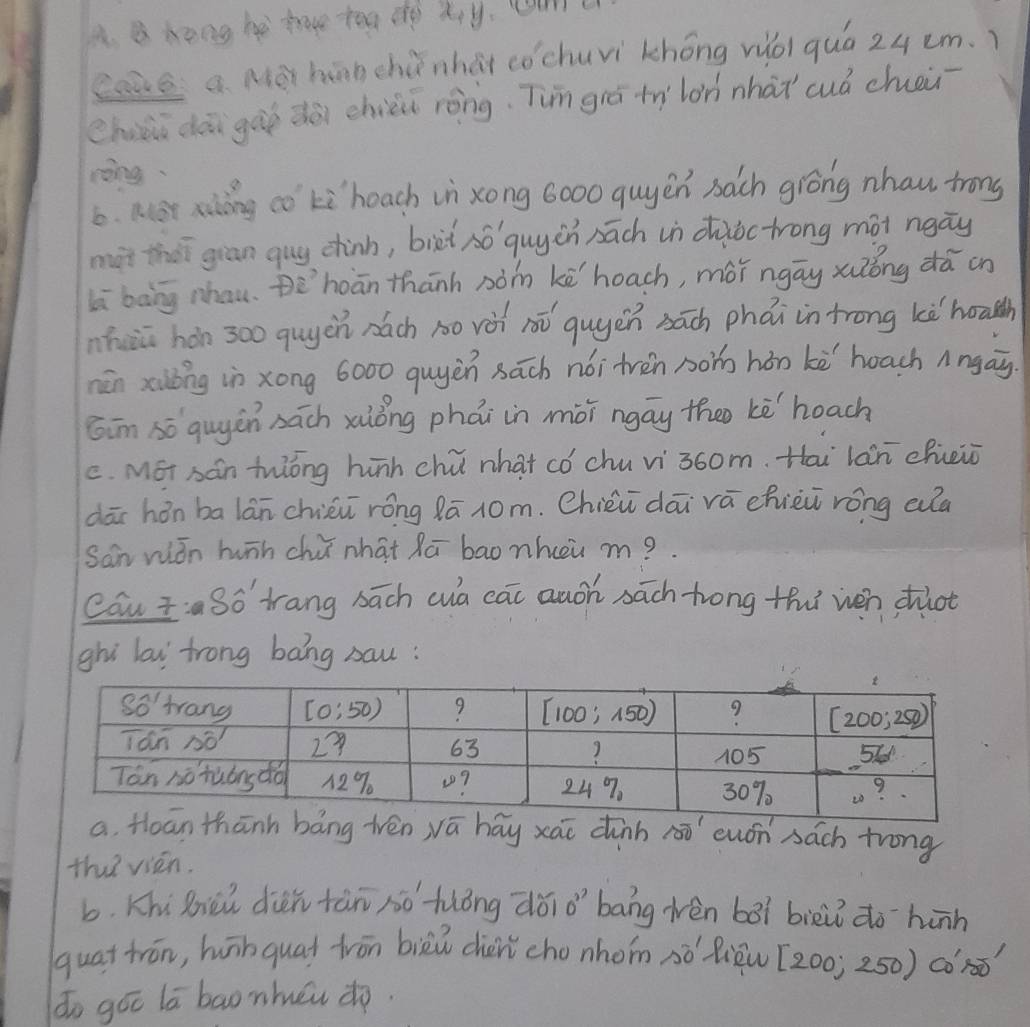 A. B trong hệ trục tọa độ x, y.
Câu 6: a. Một hình chữ nhật có chu vi không vượt quá 24 cm.
Chiều dài gấp đôi chiều rộng. Tìm giá trị lớn nhất của chiều
rộng.
b. Một xưởng có kế hoạch in xong 6000 quyển sách giống nhau trong
một thời gian quy định, biết số quyển sách in được trong một ngày
là bằng nhau. Để hoàn thành sớm kế hoạch, mỗi ngày xưởng đã in
nhiều hơn 300 quyển sách so với số quyển sách phải in trong kế hoạch
nên xưởng in xong 6000 quyển sách nói trên sớm hơn kế hoạch 1 ngày.
Tìm số quyển sách xưởng phải in mỗi ngày theo kế hoạch
c. Một sân trường hình chữ nhật có chu vi 360m. Hai lần chiều
dài hơn ba lần chiều rộng là 10m. Chiều dài và chiều rộng của
Sân vườn hình chữ nhật là bao nhiêu m?.
Câu 7: a Số trang sách của các cuốn sách trong thư viện được
ghi lại trong bảng sau:
Số trang [0;50) ? [100; 150) ? [200;250)
Tần số 63 ? 105 56
Tần số tương đối 12% ? 24% 30% ?.
a. Hoàn thành bảng trên và hãy xác định số cuốn sách trong
thư viện.
b. Khi biểu diễn tần số tương đối ở bảng trên bởi biểu đồ hình
quạt tròn, hình quạt tròn biểu diễn cho nhóm số liệu [200; 250) có số
đo góc là bao nhiêu độ.